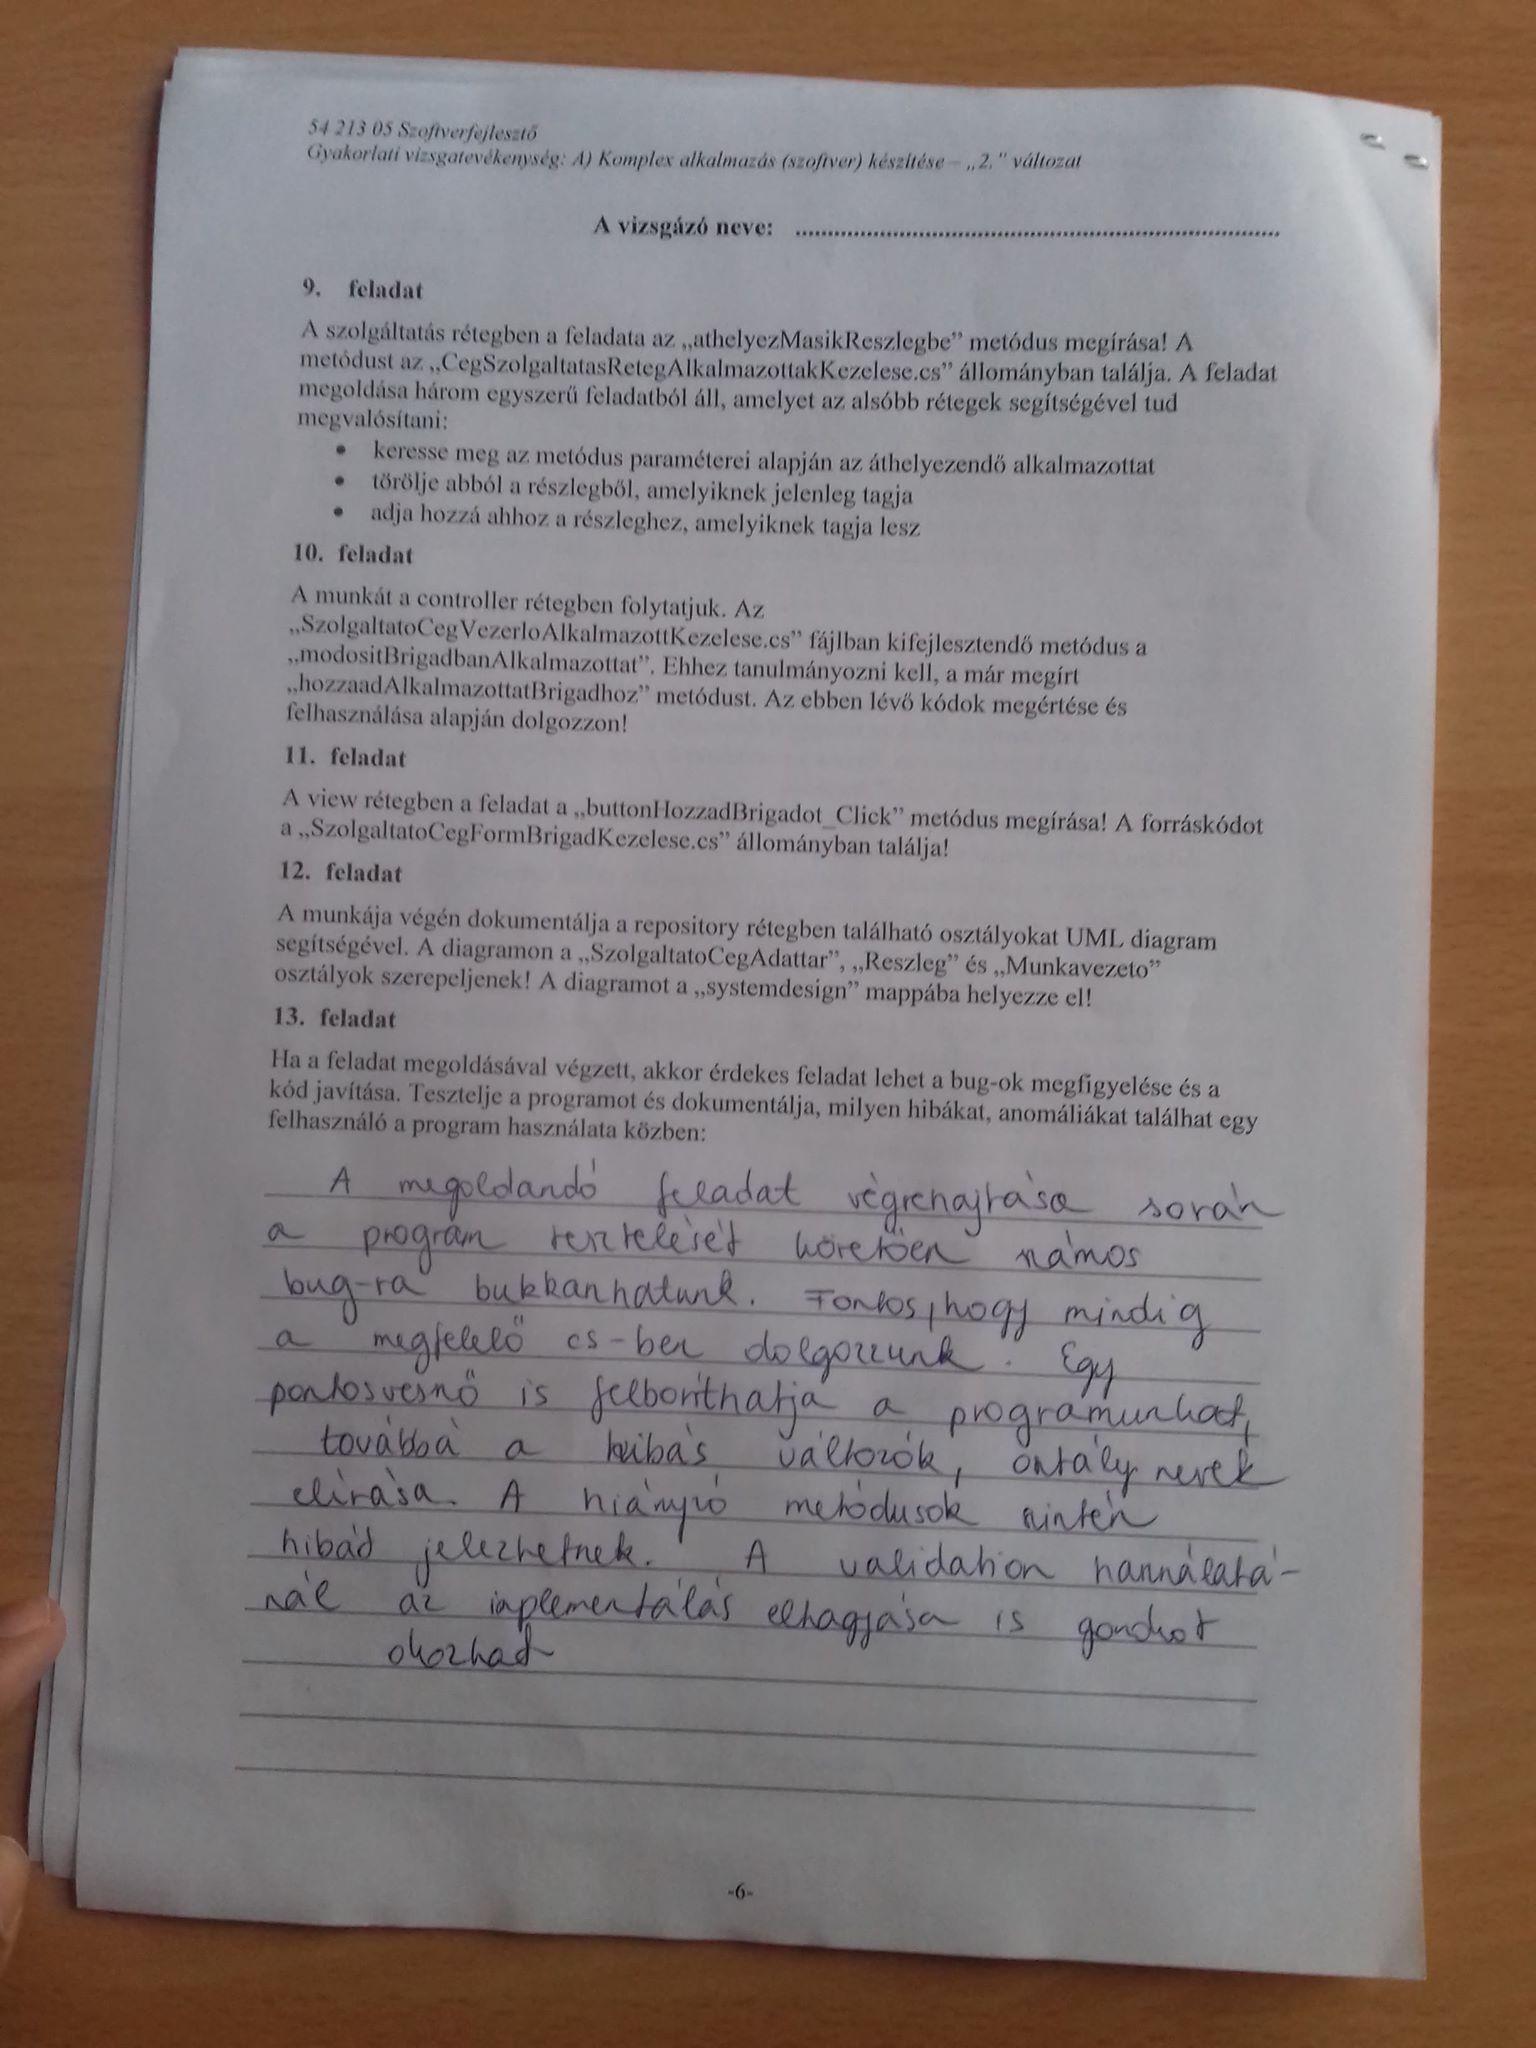 54 213 05 Szoftverfejlesztő
Gyakorlati vizsgatevékenység: A) Komplex alkalmazás (szoftver) készítése – „2.” változat
A vizsgázó neve: ........................................................................
9. feladat
A szolgáltatás rétegben a feladata az „athelyezMasikReszlegbe” metódus megírása! A
metódust az „CegSzolgaltatasRetegAlkalmazottakKezelese.cs” állományban találja. A feladat
megoldása három egyszerű feladatból áll, amelyet az alsóbb rétegek segítségével tud
megvalósítani:
• keresse meg az metódus paraméterei alapján az áthelyezendő alkalmazottat
• törölje abból a részlegből, amelyiknek jelenleg tagja
• adja hozzá ahhoz a részleghez, amelyiknek tagja lesz
10. feladat
A munkát a controller rétegben folytatjuk. Az
„SzolgaltatoCegVezerloAlkalmazottKezelese.cs” fájlban kifejlesztendő metódus a
„modositBrigadbanAlkalmazottat”. Ehhez tanulmányozni kell, a már megírt
„hozzaadAlkalmazottatBrigadhoz” metódust. Az ebben lévő kódok megértése és
felhasználása alapján dolgozzon!
11. feladat
A view rétegben a feladat a „buttonHozzadBrigadot_Click” metódus megírása! A forráskódot
a „SzolgaltatoCegFormBrigadKezelese.cs” állományban találja!
12. feladat
A munkája végén dokumentálja a repository rétegben található osztályokat UML diagram
segítségével. A diagramon a „SzolgaltatoCegAdattar”, „Reszleg” és „Munkavezeto”
osztályok szerepeljenek! A diagramot a „systemdesign” mappába helyezze el!
13. feladat
Ha a feladat megoldásával végzett, akkor érdekes feladat lehet a bug-ok megfigyelése és a
kód javítása. Tesztelje a programot és dokumentálja, milyen hibákat, anomáliákat találhat egy
felhasználó a program használata közben:
A megoldandó feladat végrehajtása során
a program tesztelését követően számos
bug-ra bukkanhatunk. Fontos, hogy mindig
a megfelelő cs-ben dolgozzunk. Egy
pontosvesző is felboríthatja a programunkat,
továbbá a hibás változók, osztály nevek
elírása. A hiányzó metódusok szintén
hibát jelezhetnek. A validation használatá-
nál az implementálás elhagyása is gondot
okozhat
-6-